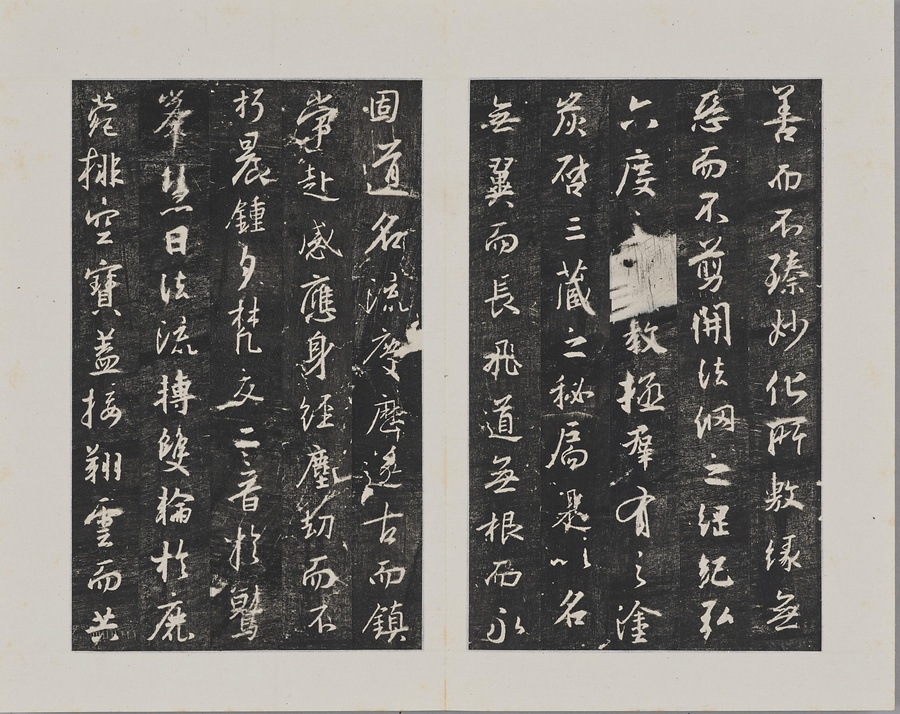 善而不臻妙化所敷緣無
惡而不剪開法網之綱紀弘
六度之教拯羣有之塗
炭啓三藏之秘扃是以名
無翼而長飛道無根而永
固道名流慶歷遂古而鎮
常赴感應身經塵劫而不
朽晨鍾夕梵交二音於鷲
峯慧日法流轉雙輪於鹿
菀排空寶蓋接翔雲而共